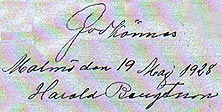 Godkännes
Malmö den 19 Maj 1928
Harald Bengtsson